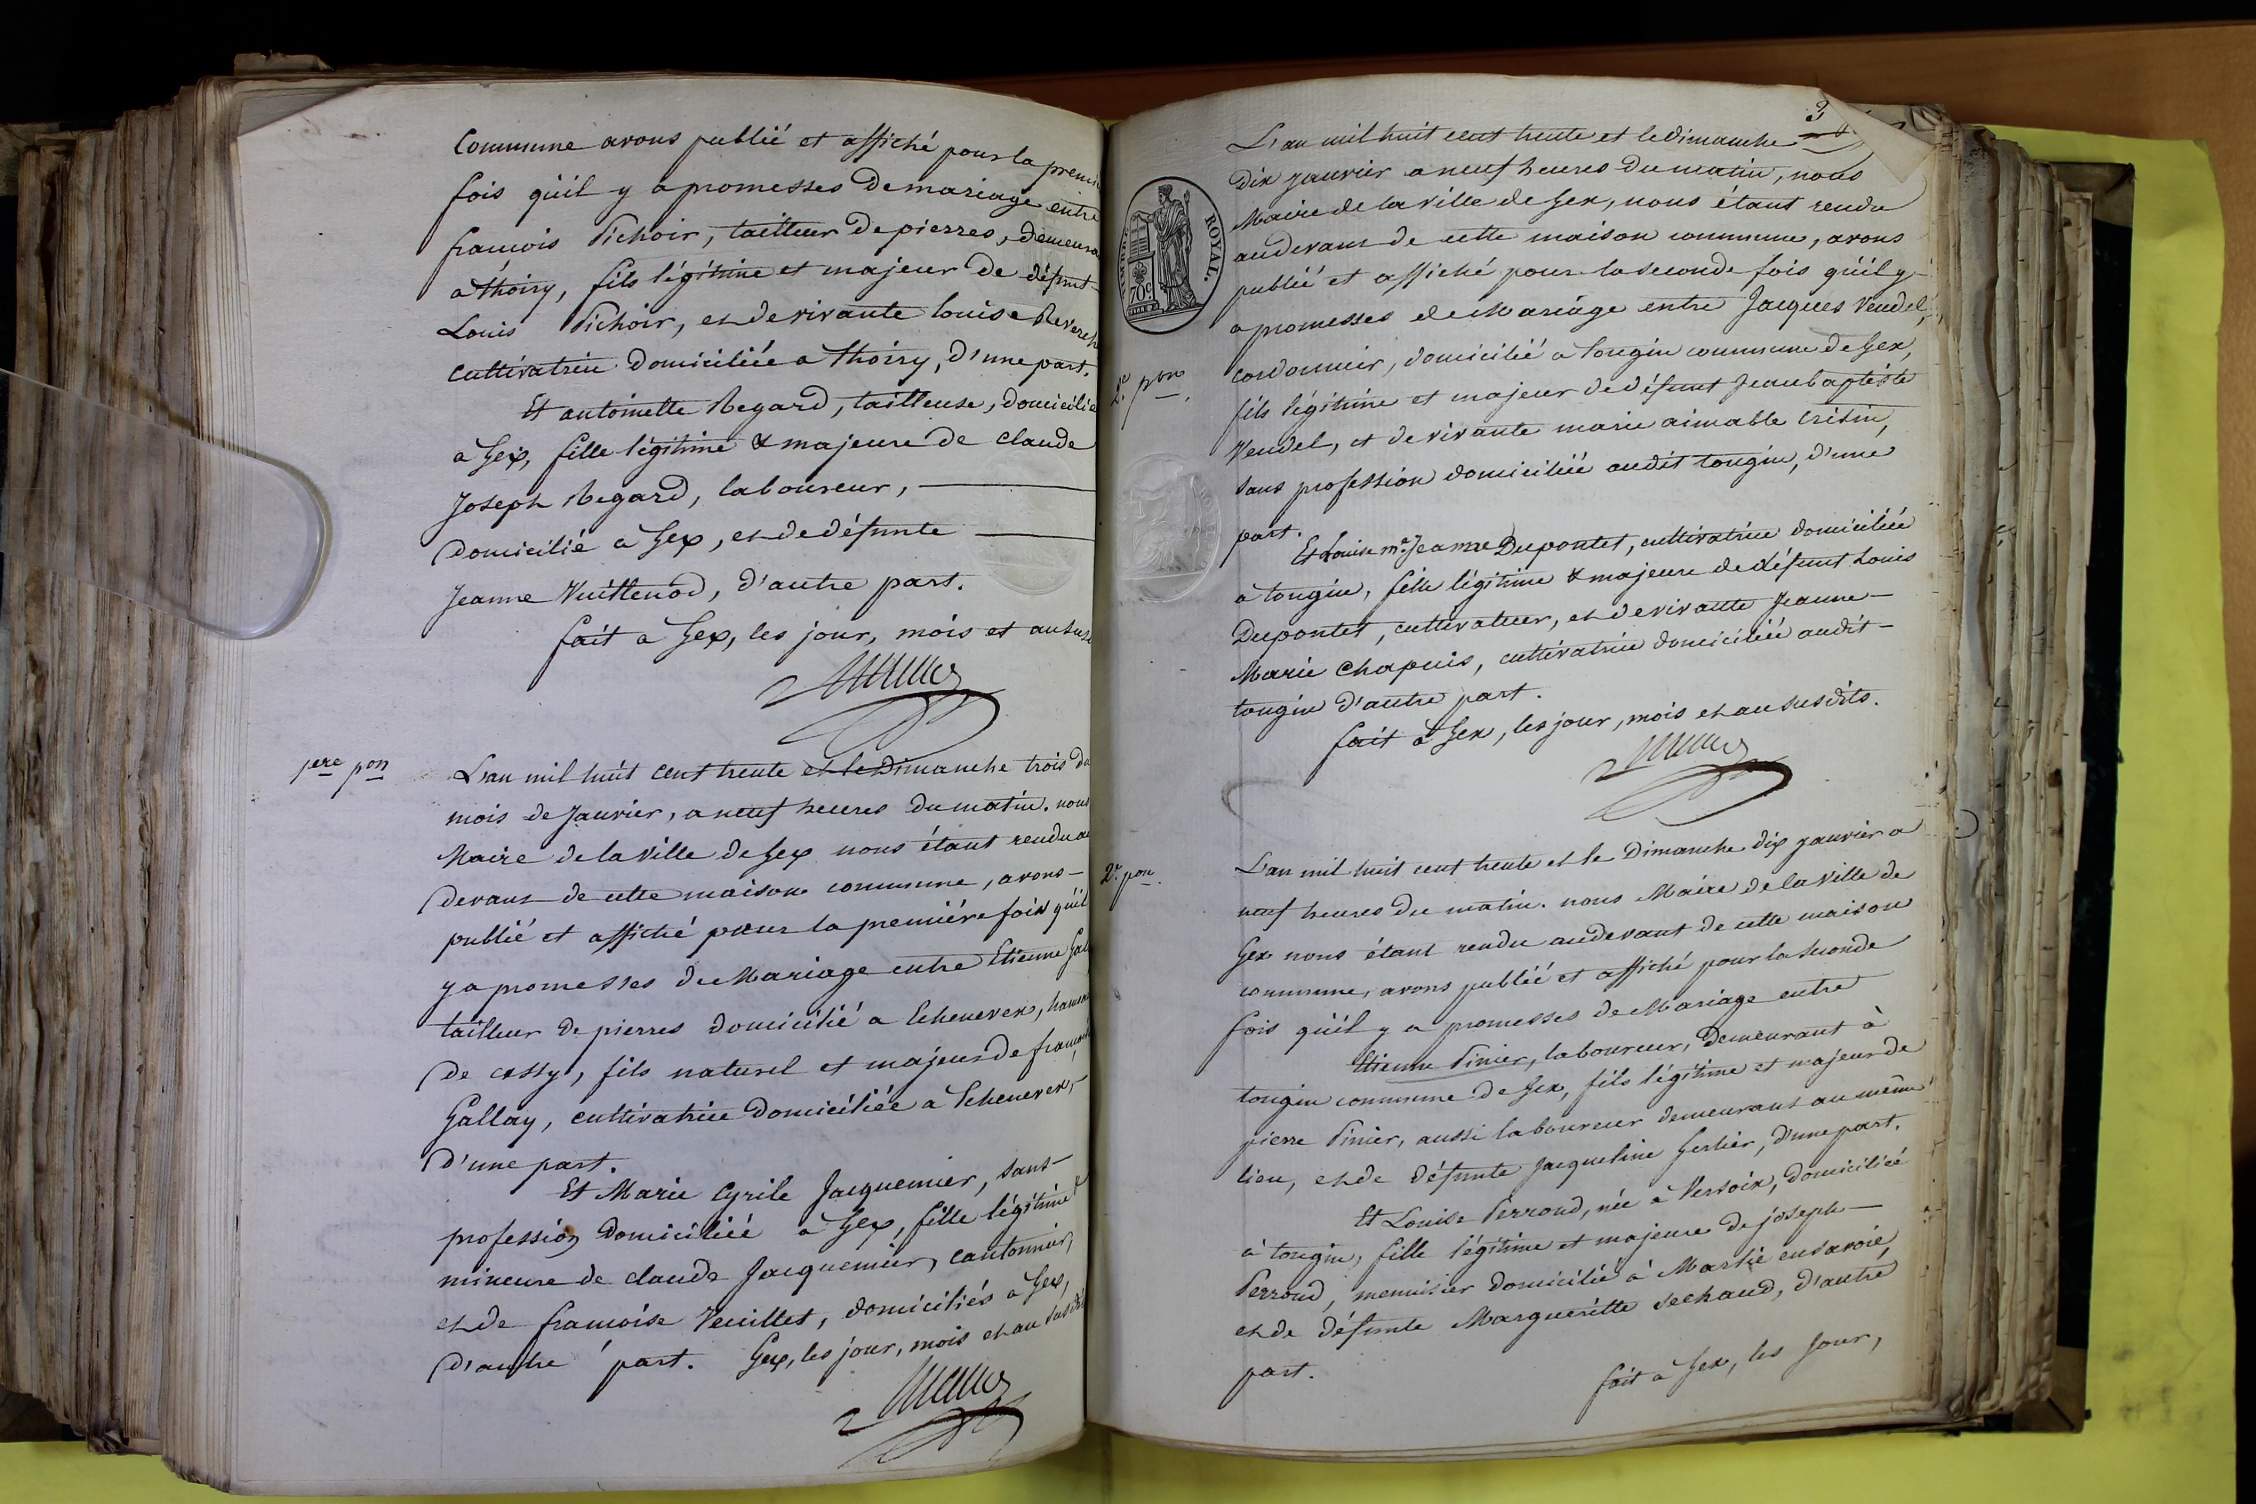 Commune avons publié et affiché pour la premi
fois qu'il y a promesses de mariage entre
françois Pichoir, tailleur de pierres, demeura
a thoiry, fils légitime et majeur de défunt
Louis Pichoir, et de vivante louise Reverch
cultivatrice domiciliée a thoiry, d'une part.
Et antoinette Regard, tailleuse, domicilié
a Gex, fille légitime & majeure de claude
Joseph Regard, laboureur,
domicilié à Gex, et de défunte
Jeanne Vuillenod, d'autre part.
fait a Gex, les jour, mois et an sus
1ere pon
L'an mil huit cent trente et le Dimanche trois du
mois de Janvier, a neuf heures du matin. nous
Maire de la ville de Gex nous étant rendu au
devant de cette maison commune, avons
publié et affiché pour la première fois qu'il
y a promesses de Mariage entre Etienne Gal
tailleur de pierres domicilié a Echenevex, hame
de cessy, fils naturel et majeur de françoise
Gallay, cultivatrice domiciliée a Echenevex,
d'une part.
Et Marie Cyrile Jacquemier, sans
profession domiciliée à Gex, fille légitime &
mineure de claude Jacquemier, cantonnier,
et de françoise Veuillet, domiciliés a Gex,
d'autre part. Gex, les jour, mois et an susdits
3
L'an mil huit cent trente et le dimanche
dix janvier a neuf heures du matin, nous
Maire de la ville de Gex, nous étant rendu
audevant de cette maison commune, avons
publié et affiché pour la seconde fois qu'il y
a promesses de Mariage entre Jacques Vendel,
cordonnier, domicilié a tougin commune de Gex,
fils légitime et majeur de défunt Jean baptiste
Vendel, et de vivante marie aimable Crétin,
sans profession domiciliée audit tougin, d'une
part.
TIMBRE ROYAL.
70c
2e pon.
Et Louise me. Jeanne Dupontet, cultivatrice domiciliée
a tougin, fille légitime & majeure de défunt Louis
Dupontet, cultivateur, et de vivante Jeanne
Marie Chapuis, cultivatrice domiciliée audit
tougin d'autre part.
fait a Gex, les jour, mois et an susdits.
2e pon.
L'an mil huit cent trente et le Dimanche dix janvier a
neuf heures du matin. nous Maire de la ville de
Gex nous étant rendu audevant de cette maison
commune, avons publié et affiché pour la seconde
fois qu'il y a promesses de Mariage entre
Etienne Pinier, laboureur, demeurant à
tougin commune de Gex, fils légitime et majeur de
pierre Pinier, aussi laboureur demeurant au même
lieu, et de défunte Jacqueline Gerlier, d'une part.
Et Louise Perroud, née à Versoix, domiciliée
à tougin, fille légitime et majeure de joseph
Perroud, menuisier domicilié à Marlié en savoie,
et de défunte Marguerite Sechaud, d'autre
part.
fait a Gex, les jour,